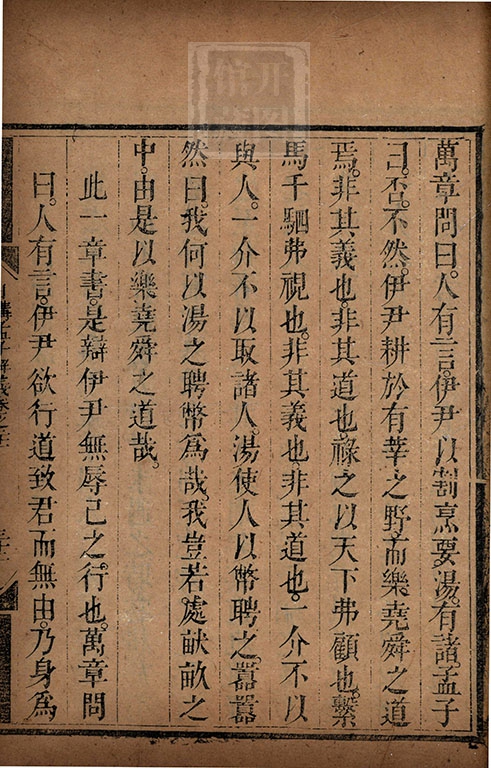 萬章問曰。人有言。伊尹以割烹要湯。有諸。孟子
曰。否。不然。伊尹耕於有莘之野。而樂堯舜之道
焉。非其義也。非其道也。祿之以天下弗顧也。繫
馬千駟弗視也。非其義也。非其道也。一介不以
與人。一介不以取諸人。湯使人以幣聘之。囂囂
然曰。我何以湯之聘幣爲哉。我豈若處畎畝之
中。由是以樂堯舜之道哉。
此一章書。是辯伊尹無辱己之行也。萬章問
曰。人有言。伊尹欲行道致君而無由。乃身爲